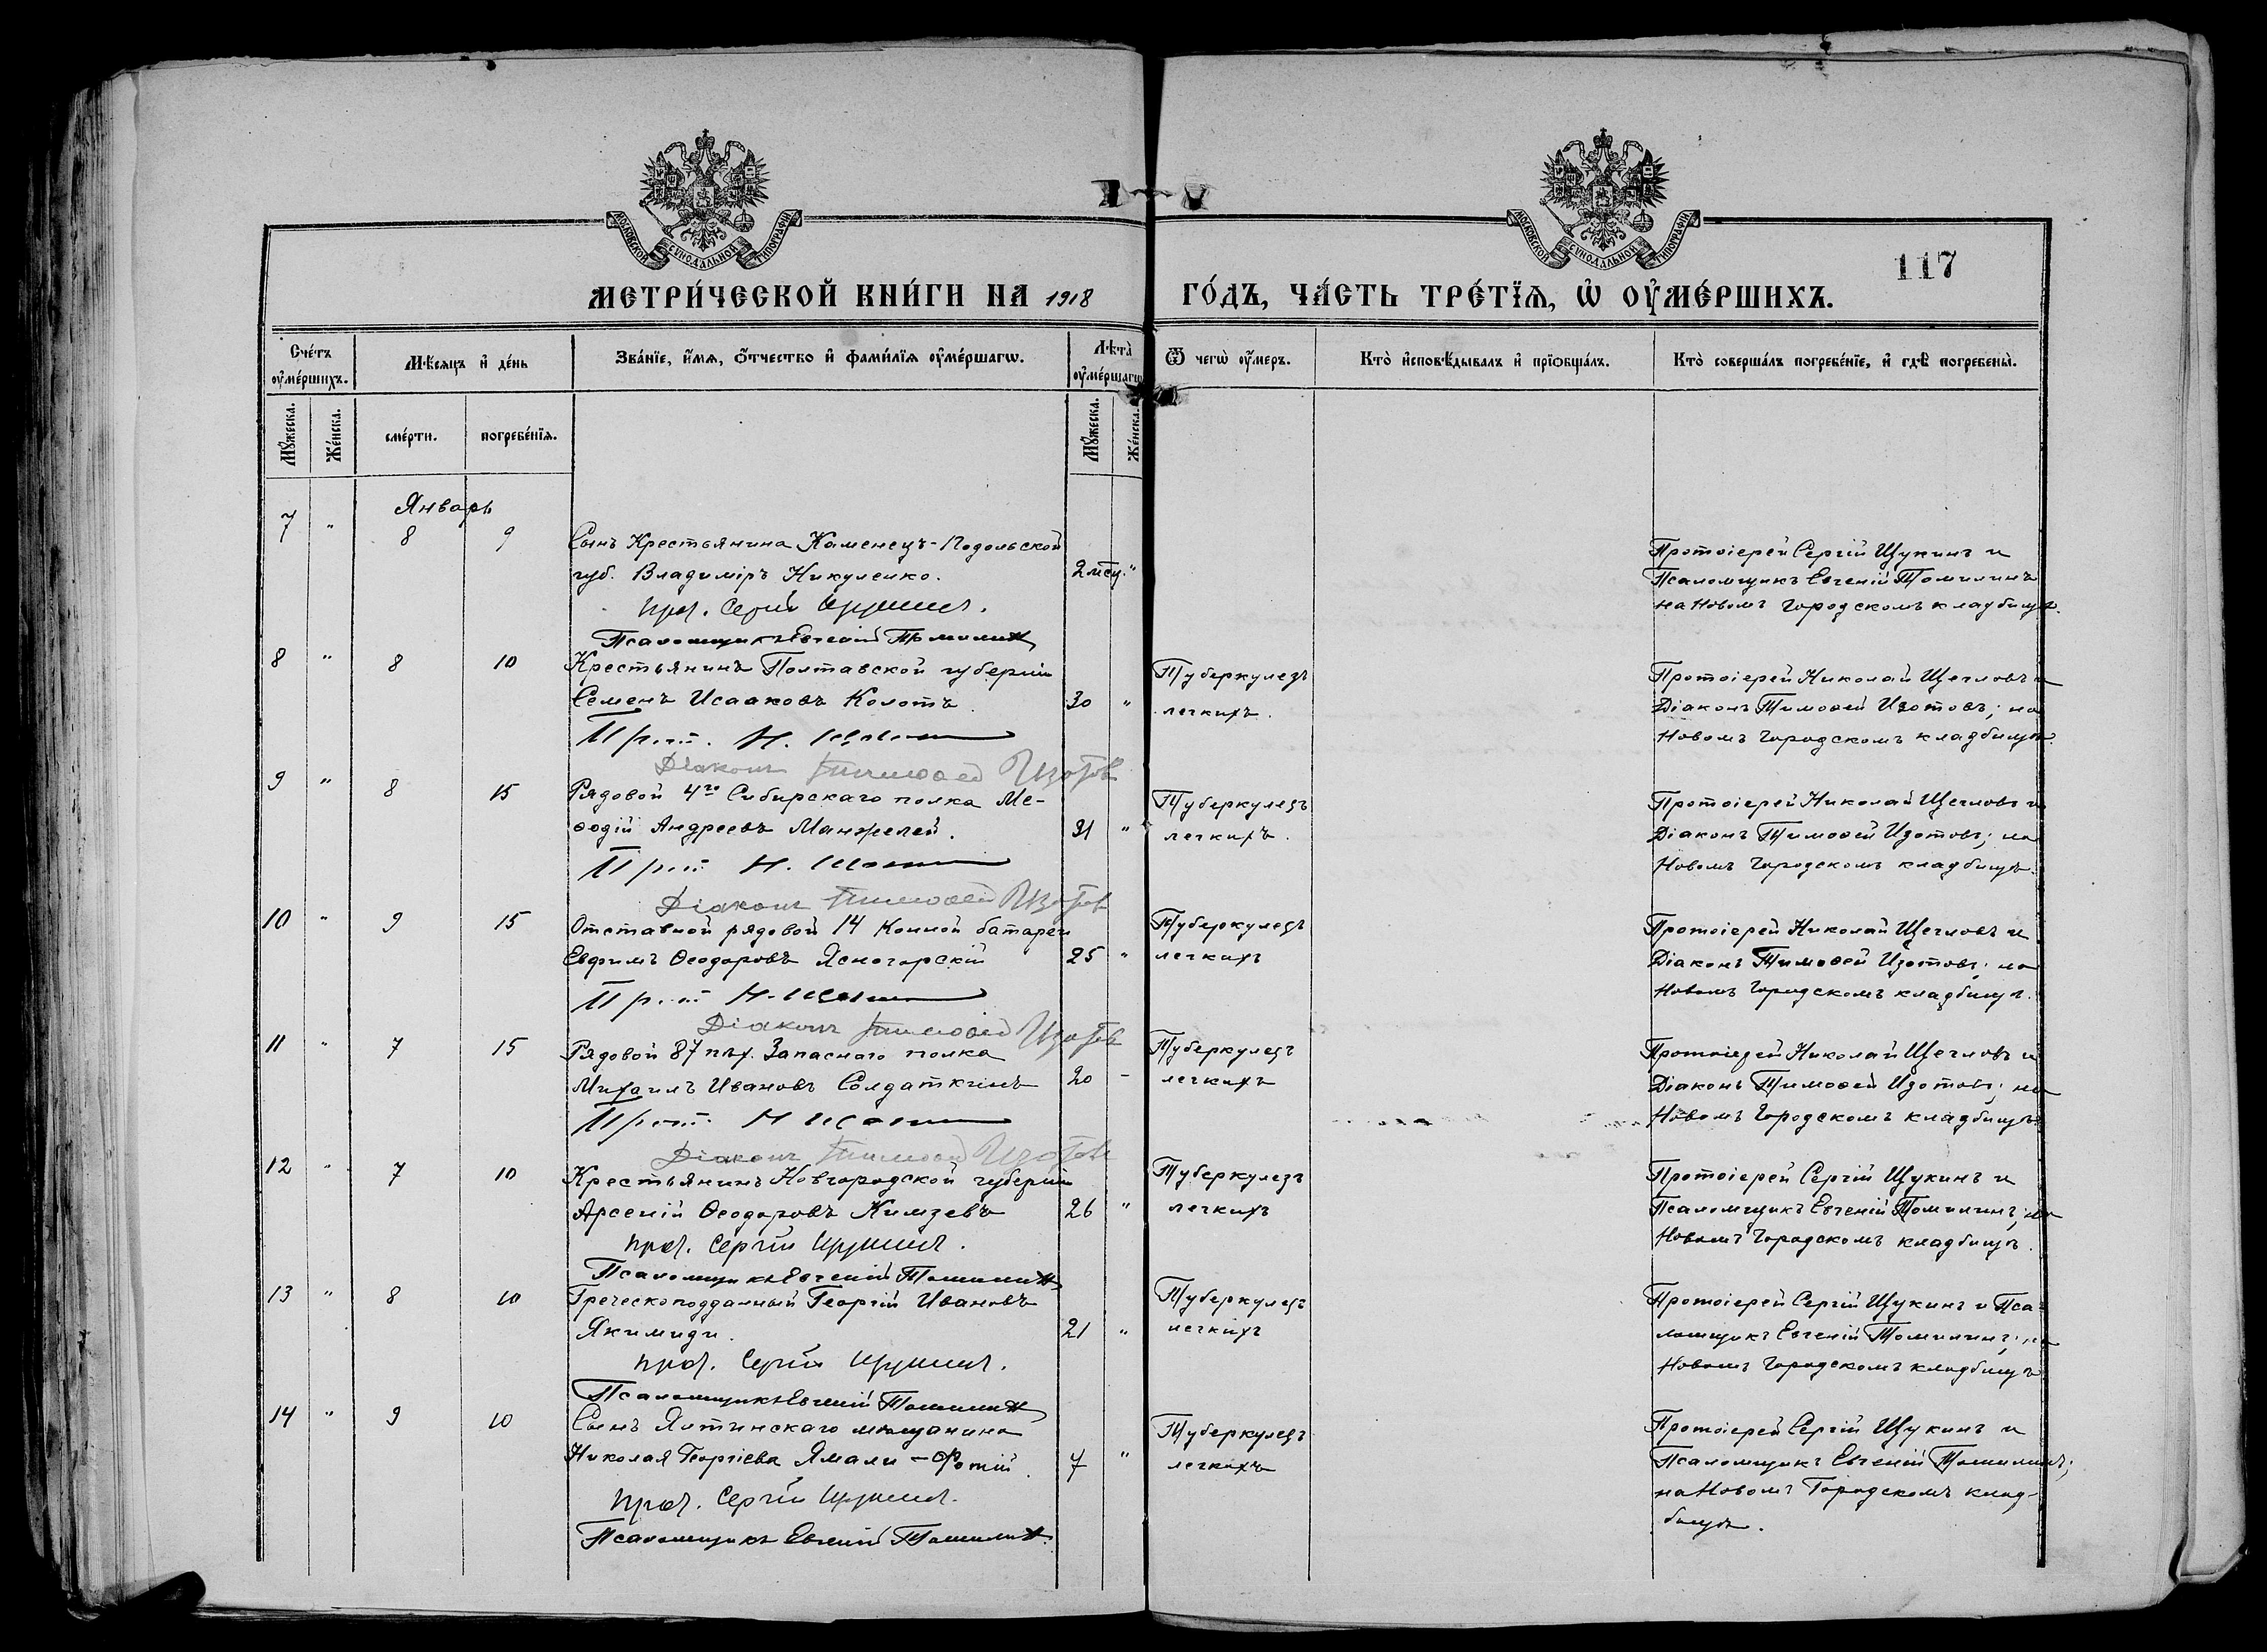 МОСКОВСКОЙ СѴНОДАЛЬНОЙ ТИПОГРАФІИ
МОСКОВСКОЙ СѴНОДАЛЬНОЙ ТИПОГРАФІИ
117
МЕТРИ́ЧЕСКОЙ КНИ́ГИ НА 1918
ГО́ДЪ, ЧА́СТЬ ТРЕ́ТЇѦ, Ѡ҆ ОУ҆МЕ́РШИХЪ.
Сче́тъ оу҆ме́ршихъ.
Мѣ́сяцъ и҆ де́нь
Зва́нїе, и҆́мѧ, ѻ҆́тчество и҆ фами́лїѧ оу҆ме́ршагѡ.
Лѣта̀ оу҆ме́ршагѡ
Ѿ чегѡ̀ оу҆́меръ.
Кто̀ и҆сповѣ́дывалъ и҆ прїѻбща́лъ.
Кто̀ соверша́лъ погребе́нїе, и҆ гдѣ̀ погребены̀.
Мꙋ́жеска.
Же́нска.
сме́рти.
погребе́нїѧ.
Мꙋ́жеска.
Же́нска.
Январь
7 " 8 9 Сынъ Крестьянина Каменецъ-Подольской
губ. Владиміръ Никуленко. 2 мѣс. "
Прот. Сергій Щукинъ.
Псаломщикъ Евгеній Томилинъ
Протоіерей Сергій Щукинъ и
Псаломщикъ Евгеній Томилинъ
на Новомъ Городскомъ кладбищѣ.
8 " 8 10 Крестьянинъ Полтавской губерніи
Семенъ Исааковъ Колотъ. 30 "
Прот. Н. Щегловъ
Діаконъ Тимоѳей Изотовъ
Туберкулезъ
легкихъ.
Протоіерей Николай Щегловъ и
Діаконъ Тимоѳей Изотовъ; на
Новомъ Городскомъ кладбищѣ.
9 " 8 15 Рядовой 4го Сибирскаго полка Ме-
ѳодій Андреевъ Манжелей. 31 "
Прот. Н. Щегловъ
Діаконъ Тимоѳей Изотовъ
Туберкулезъ
легкихъ.
Протоіерей Николай Щегловъ и
Діаконъ Тимоѳей Изотовъ; на
Новомъ Городскомъ кладбищѣ.
10 " 9 15 Отставной рядовой 14 Конной батареи
Евфимъ Ѳеодоровъ Ясногорскій 25 "
Прот. Н. Щегловъ
Діаконъ Тимоѳей Изотовъ
Туберкулезъ
легкихъ
Протоіерей Николай Щегловъ и
Діаконъ Тимоѳей Изотовъ; на
Новомъ Городскомъ кладбищѣ.
11 " 7 15 Рядовой 87 пѣх. Запаснаго полка
Михаилъ Ивановъ Солдаткинъ 20 -
Прот. Н. Щегловъ
Діаконъ Тимоѳей Изотовъ
Туберкулезъ
легкихъ
Протоіерей Николай Щегловъ и
Діаконъ Тимоѳей Изотовъ; на
Новомъ Городскомъ кладбищѣ
12 " 7 10 Крестьянинъ Новгородской губерніи
Арсеній Ѳеодоровъ Кимзевъ 26 "
Прот. Сергій Щукинъ.
Псаломщикъ Евгеній Томилинъ
Туберкулезъ
легкихъ
Протоіерей Сергій Щукинъ и
Псаломщикъ Евгеній Томилинъ; на
Новомъ Городскомъ кладбищѣ.
13 " 8 10 Греческоподданный Георгій Ивановъ
Якимиди. 21 "
Прот. Сергій Щукинъ.
Псаломщикъ Евгеній Томилинъ
Туберкулезъ
легкихъ
Протоіерей Сергій Щукинъ и Пса-
ломщикъ Евгеній Томилинъ; на
Новомъ Городскомъ кладбищѣ
14 " 9 10 Сынъ Ялтинскаго мѣщанина
Николая Георгіева Ямали - Фотій. 7 "
Прот. Сергій Щукинъ.
Псаломщикъ Евгеній Томилинъ.
Туберкулезъ
легкихъ
Протоіерей Сергій Щукинъ и
Псаломщикъ Евгеній Томилинъ;
на Новомъ Городскомъ клад-
бищѣ.